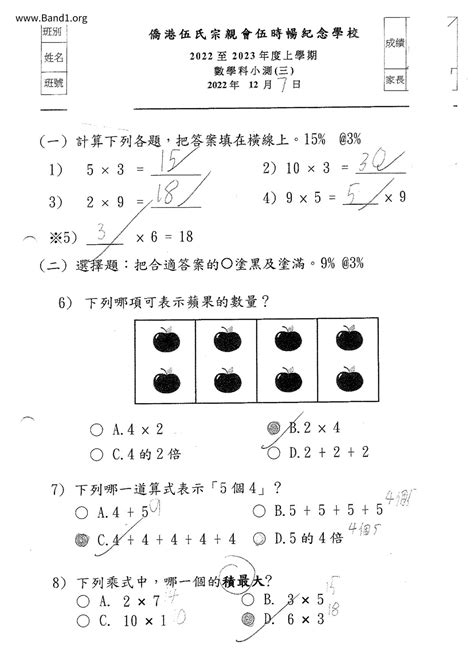 www.Band1.org
班別
姓名
班號
僑港伍氏宗親會伍時暢紀念學校
2022 至 2023 年度上學期
數學科小測(三)
2022 年 12 月 7 日
成績
家長
(一) 計算下列各題，把答案填在橫線上。15% @3%
1) 5 × 3 = 15 2) 10 × 3 = 30
3) 2 × 9 = 18 4) 9 × 5 = 5 × 9
※5) 3 × 6 = 18
(二) 選擇題：把合適答案的○塗黑及塗滿。9% @3%
6) 下列哪項可表示蘋果的數量？
A. 4 × 2 B. 2 × 4
C. 4 的 2 倍 D. 2 + 2 + 2
7) 下列哪一道算式表示「5 個 4」？
A. 4 + 5 9 B. 5 + 5 + 5 + 5 4個5
C. 4 + 4 + 4 + 4 + 4 D. 5 的 4 倍 4個5
8) 下列乘式中，哪一個的積最大？
A. 2 × 7 14 B. 3 × 5 15
C. 10 × 1 10 D. 6 × 3 18